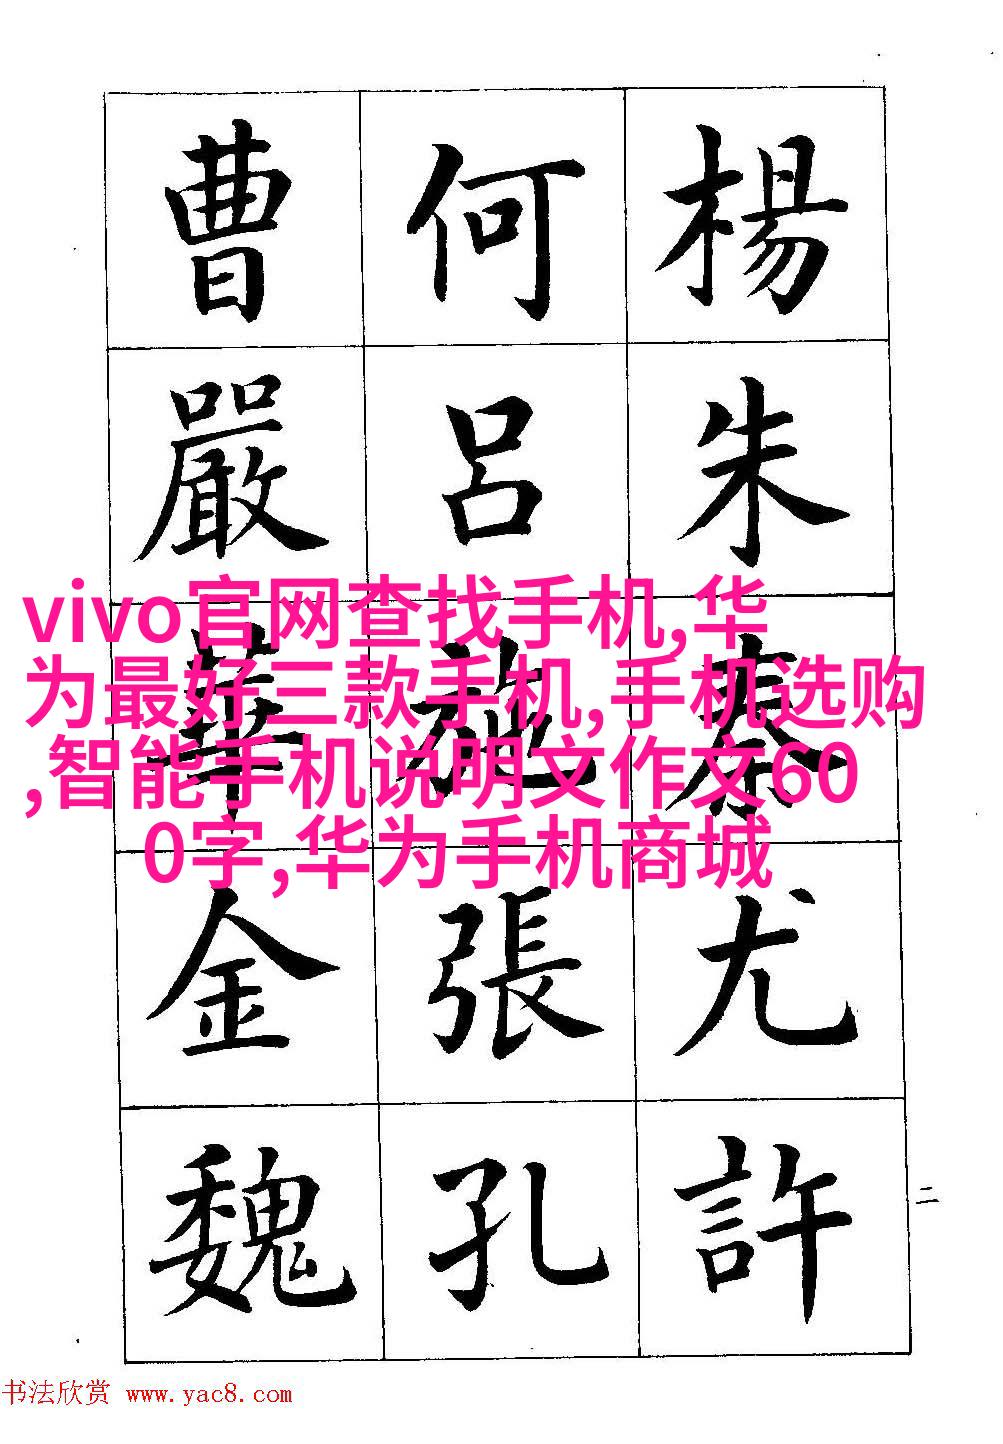 楊朱秦尤許
何呂施張孔
曹嚴華金魏
vivo官网查找手机,华
为最好三款手机,手机选购
,智能手机说明文作文60
0字,华为手机商城
二
书法欣赏 www.yac8.com